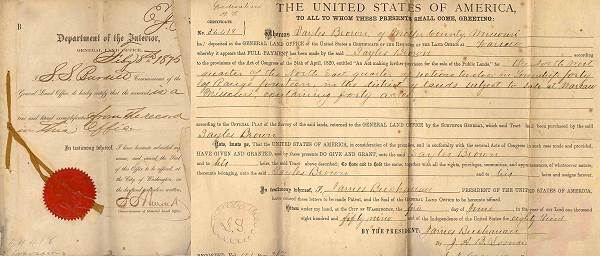 B
Department of the Interior,
GENERAL LAND OFFICE,
July 8th 1875
I, S.S. Burdett Commissioner of the
General Land Office, do hereby certify that the annexed is a
true and literal exemplification from the record
in this Office
In testimony whereof, I have hereunto subscribed my
name, and caused the Seal
of this Office to be affixed, at
the City of Washington,
on the day and year above written.
S S Burdett
Commissioner of General Land Office.
THE UNITED STATES OF AMERICA,
TO ALL TO WHOM THESE PRESENTS SHALL COME, GREETING:
CERTIFICATE
No.
Whereas Sayles Brown of County Missouri
has deposited in the GENERAL LAND OFFICE of the United States a Certificate of the REGISTER OF THE LAND OFFICE at Warsaw
whereby it appears that FULL PAYMENT has been made by the said Sayles Brown according
to the provisions of the Act of Congress of the 24th of April, 1820, entitled "An Act making further provision for the sale of the Public Lands," for the North West
quarter of the North East quarter of section twelve in Township forty
of Range fourteen in the District of Lands subject to sale at Warsaw
Missouri, containing forty acres
according to the OFFICIAL PLAT of the Survey of the said lands, returned to the GENERAL LAND OFFICE by the SURVEYOR GENERAL, which said Tract has been purchased by the said
Sayles Brown
Now, know ye, That the UNITED STATES OF AMERICA, in consideration of the premises, and in conformity with the several Acts of Congress in such case made and provided,
HAVE GIVEN AND GRANTED, and by these presents DO GIVE AND GRANT, unto the said Sayles Brown
and to his heirs, the said Tract above described: To have and to hold the same, together with all the rights, privileges, immunities, and appurtenances, of whatsoever nature,
thereunto belonging, unto the said Sayles Brown and to his heirs and assigns forever.
In testimony whereof, I, James Buchanan PRESIDENT OF THE UNITED STATES OF AMERICA,
have caused these letters to be made Patent, and the Seal of the GENERAL LAND OFFICE to be hereunto affixed.
Given under my hand, at the CITY OF WASHINGTON, the day of June in the year of our Lord one thousand
eight hundred and fifty nine and of the Independence of the United States the eighty third
L.S.
BY THE PRESIDENT: James Buchanan